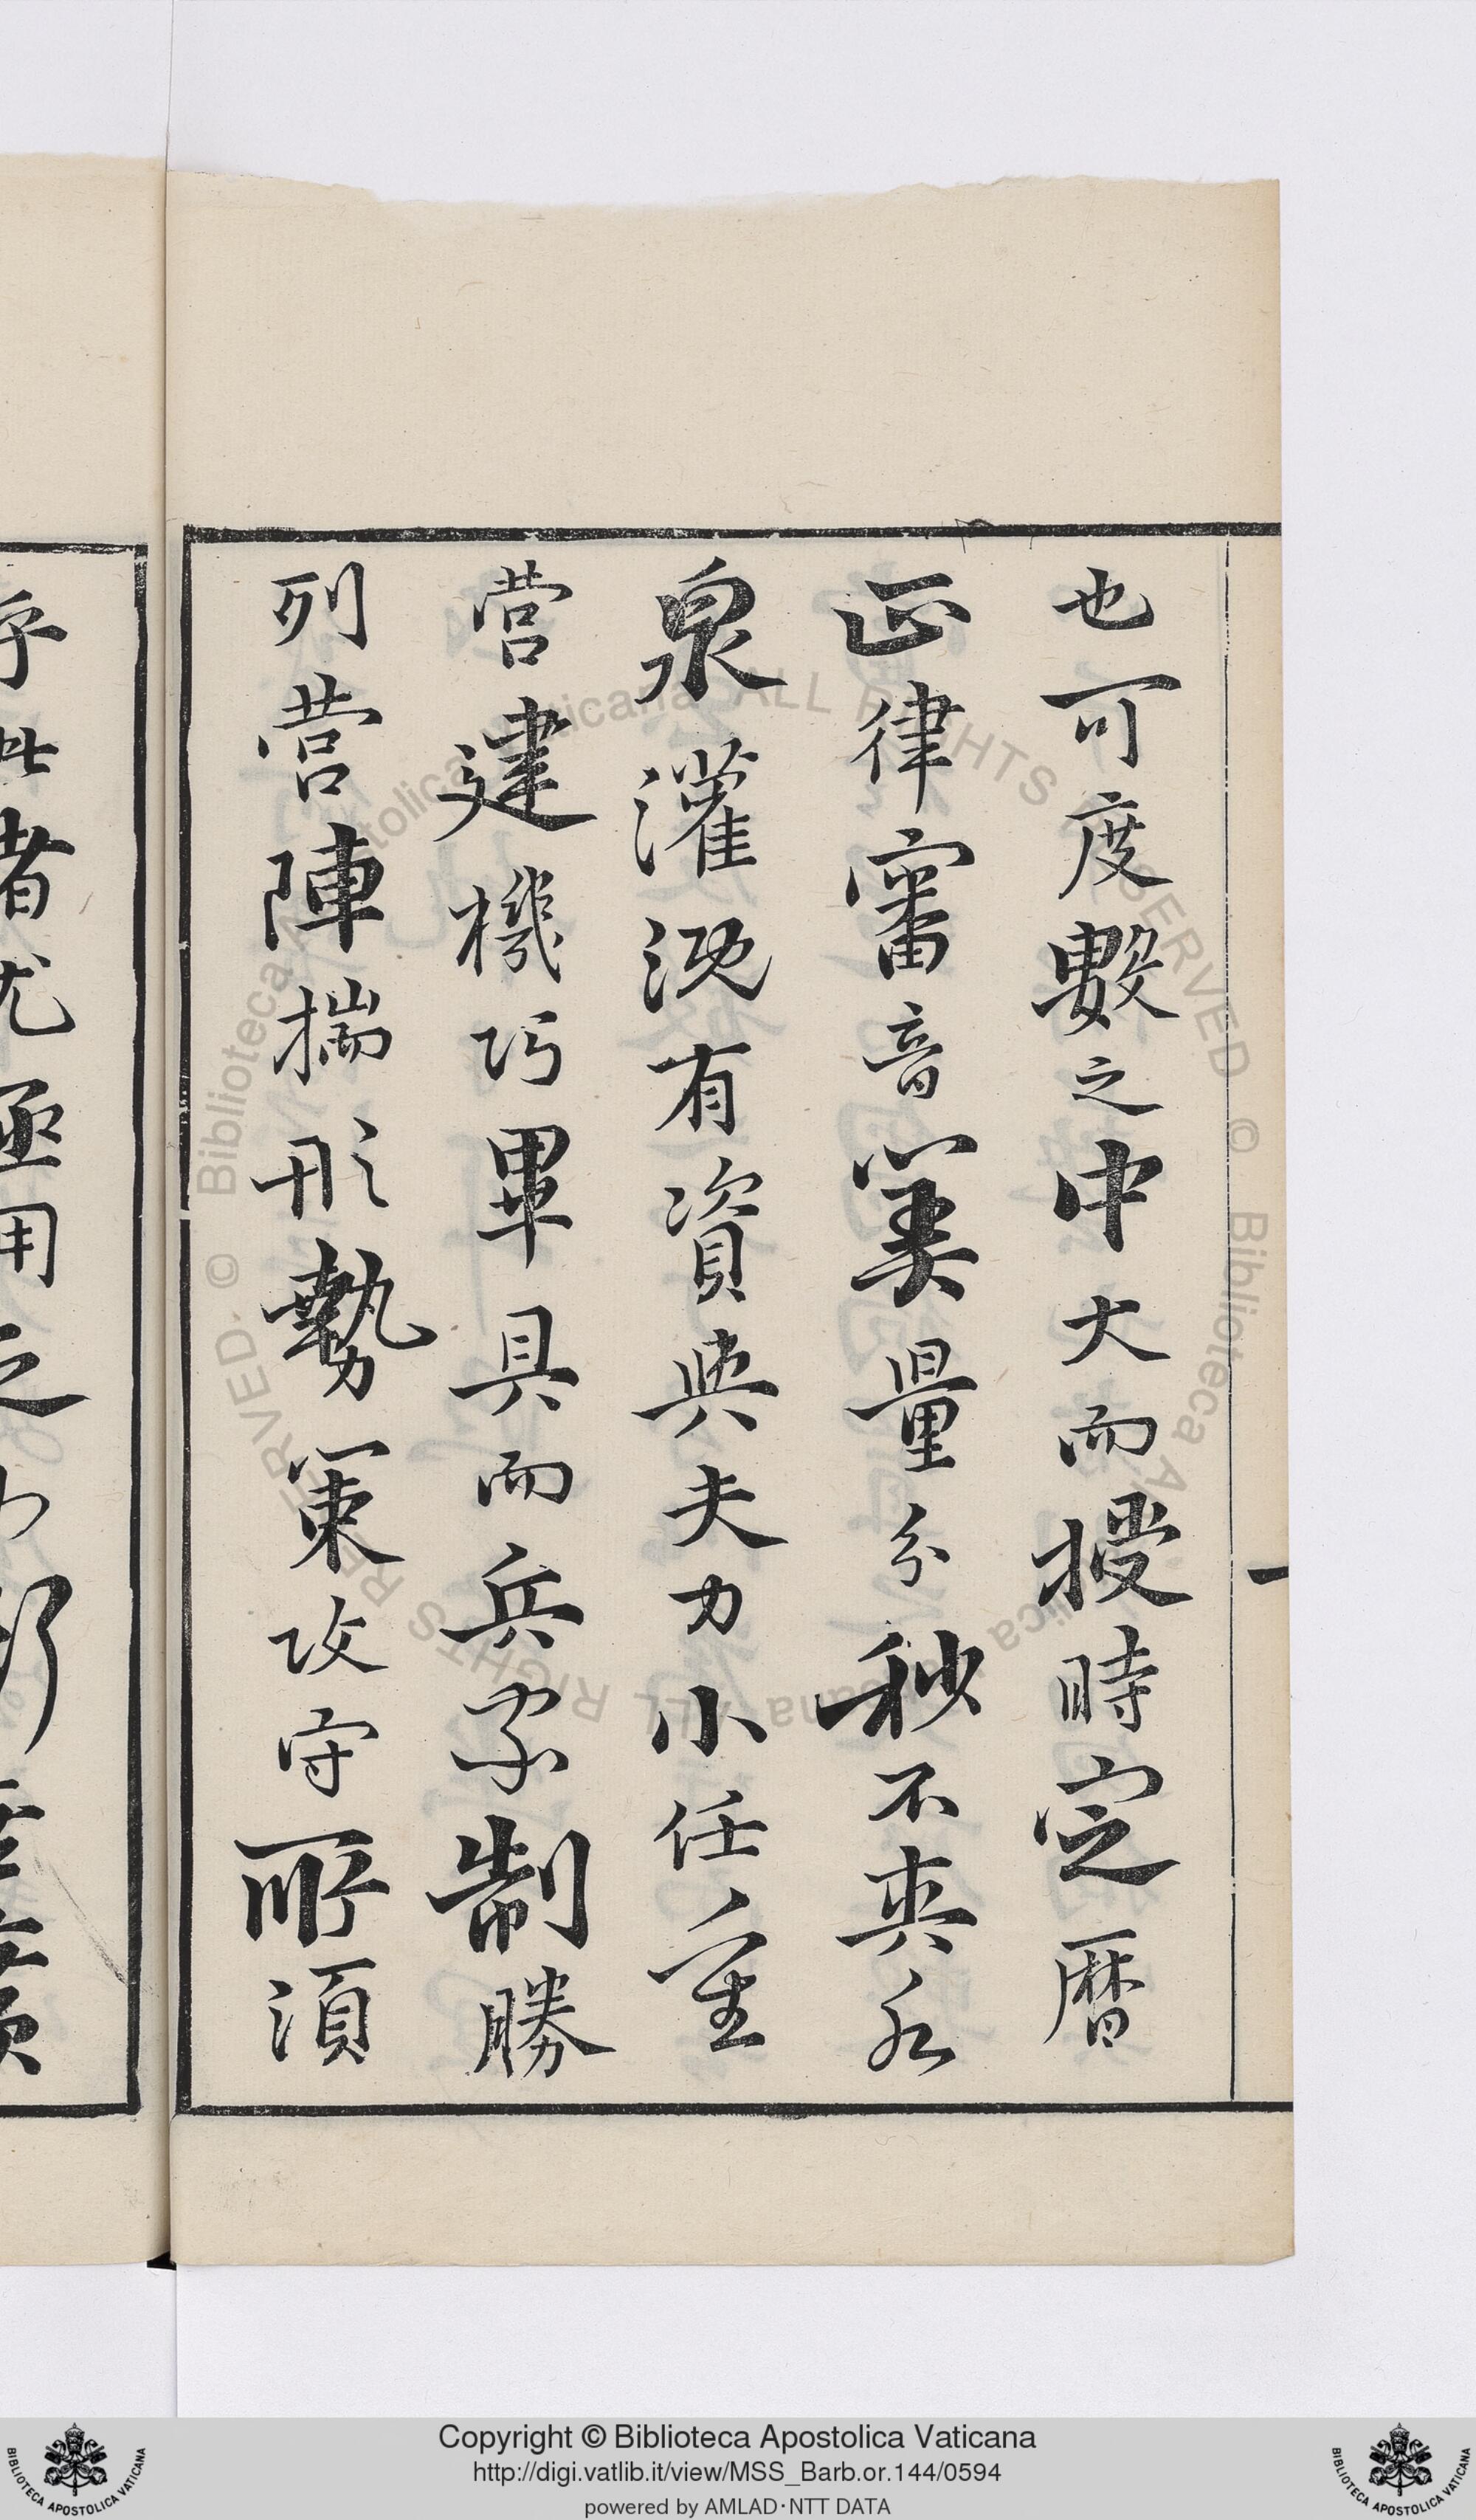 也可度數之中大而授時定曆
正律審音筭量分秒不爽水
泉灌溉有資與夫力小任重
营建機巧畢具而兵家制勝
列营陣揣形勢策攻守所須
乎此者尤亟用之
Copyright © Biblioteca Apostolica Vaticana
http://digi.vatlib.it/view/MSS_Barb.or.144/0594
powered by AMLAD·NTT DATA
BIBLIOTECA APOSTOLICA VATICANA
BIBLIOTECA APOSTOLICA VATICANA